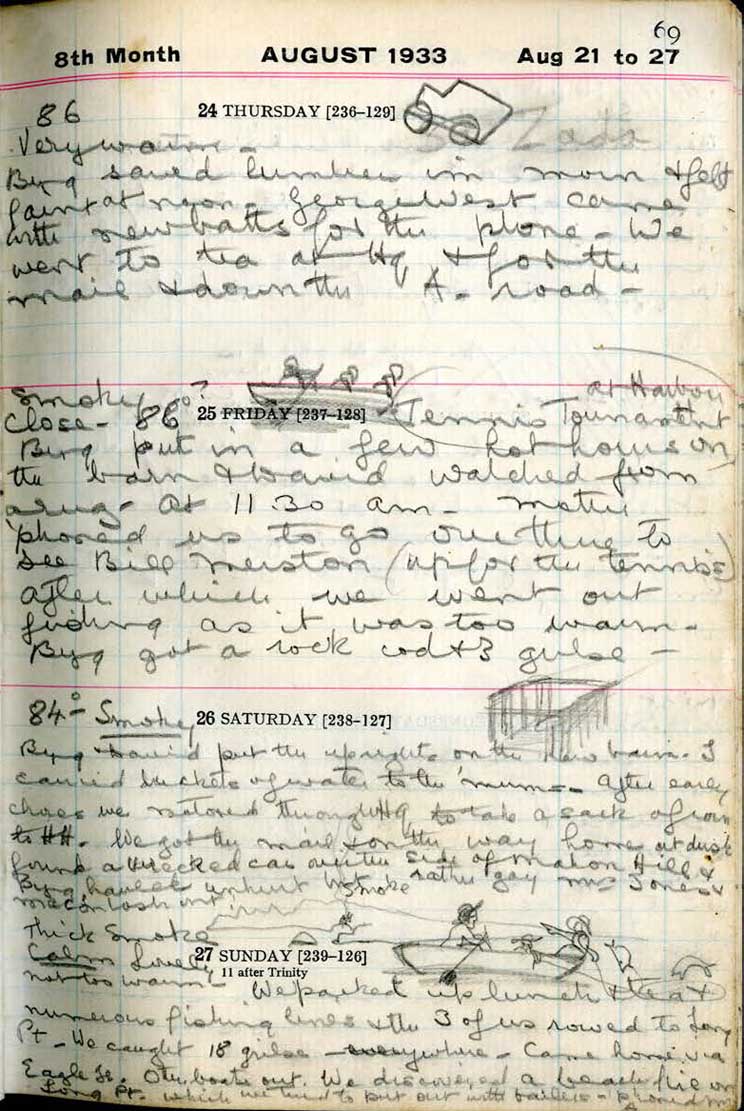 69
8th Month AUGUST 1933 Aug 21 to 27
86
24 THURSDAY [236-129]
Very warm -
Byng sawed lumber in morn & felt
faint at noon. George West came
with new batts for the phone - We
went to tea at Hq & for the
mail & down the A. road -
Smoky
at Harbour
Close - 86°
25 FRIDAY [237-128]
Tennis Tournament
Byng put in a few hot hours on
the barn & David watched from
a rug - At 11.30 am - mother
'phoned us to go over there to
see Bill (up for the tennis)
after which we went out
fishing as it was too warm -
Byng got a rock cod & 3 grilse -
84° - Smoky
26 SATURDAY [238-127]
Byng & David put the uprights on the new barn. I
carried buckets of water to the 'mums - After early
chores we motored through Hq, to take a sack of corn
to HH. We got the mail & on the way home at dusk
found a wrecked car over the side of Mahon Hill &
Byng hauled unhurt but rather gay Mrs Jones &
out.
smoke
Thick Smoke
Calm Lovely
27 SUNDAY [239-126]
11 after Trinity
not too warm
We packed up lunch & tea &
numerous fishing lines & the 3 of us rowed to Long
Pt - We caught 18 grilse - everywhere - Came home via
Eagle Is. Other boats out. We discovered a beach fire on
Long Pt. which we tried to put out with bailers - phoned